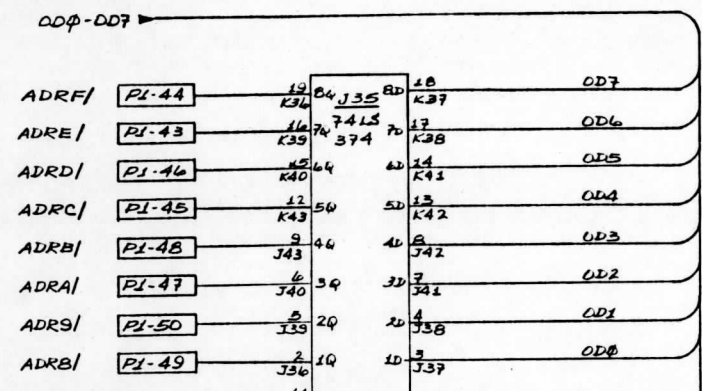 ODØ-OD7
ADRF/ P1-44 19 K36 8Q J35 8D 18 K37 OD7
ADRE/ P1-43 16 K39 7Q 74LS 7D 17 K38 OD6
374
ADRD/ P1-46 15 K40 6Q 6D 14 K41 OD5
ADRC/ P1-45 12 K43 5Q 5D 13 K42 OD4
ADRB/ P1-48 9 J43 4Q 4D 8 J42 OD3
ADRA/ P1-47 6 J40 3Q 3D 7 J41 OD2
ADR9/ P1-50 5 J39 2Q 2D 4 J38 OD1
ADR8/ P1-49 2 J36 1Q 1D 3 J37 ODØ